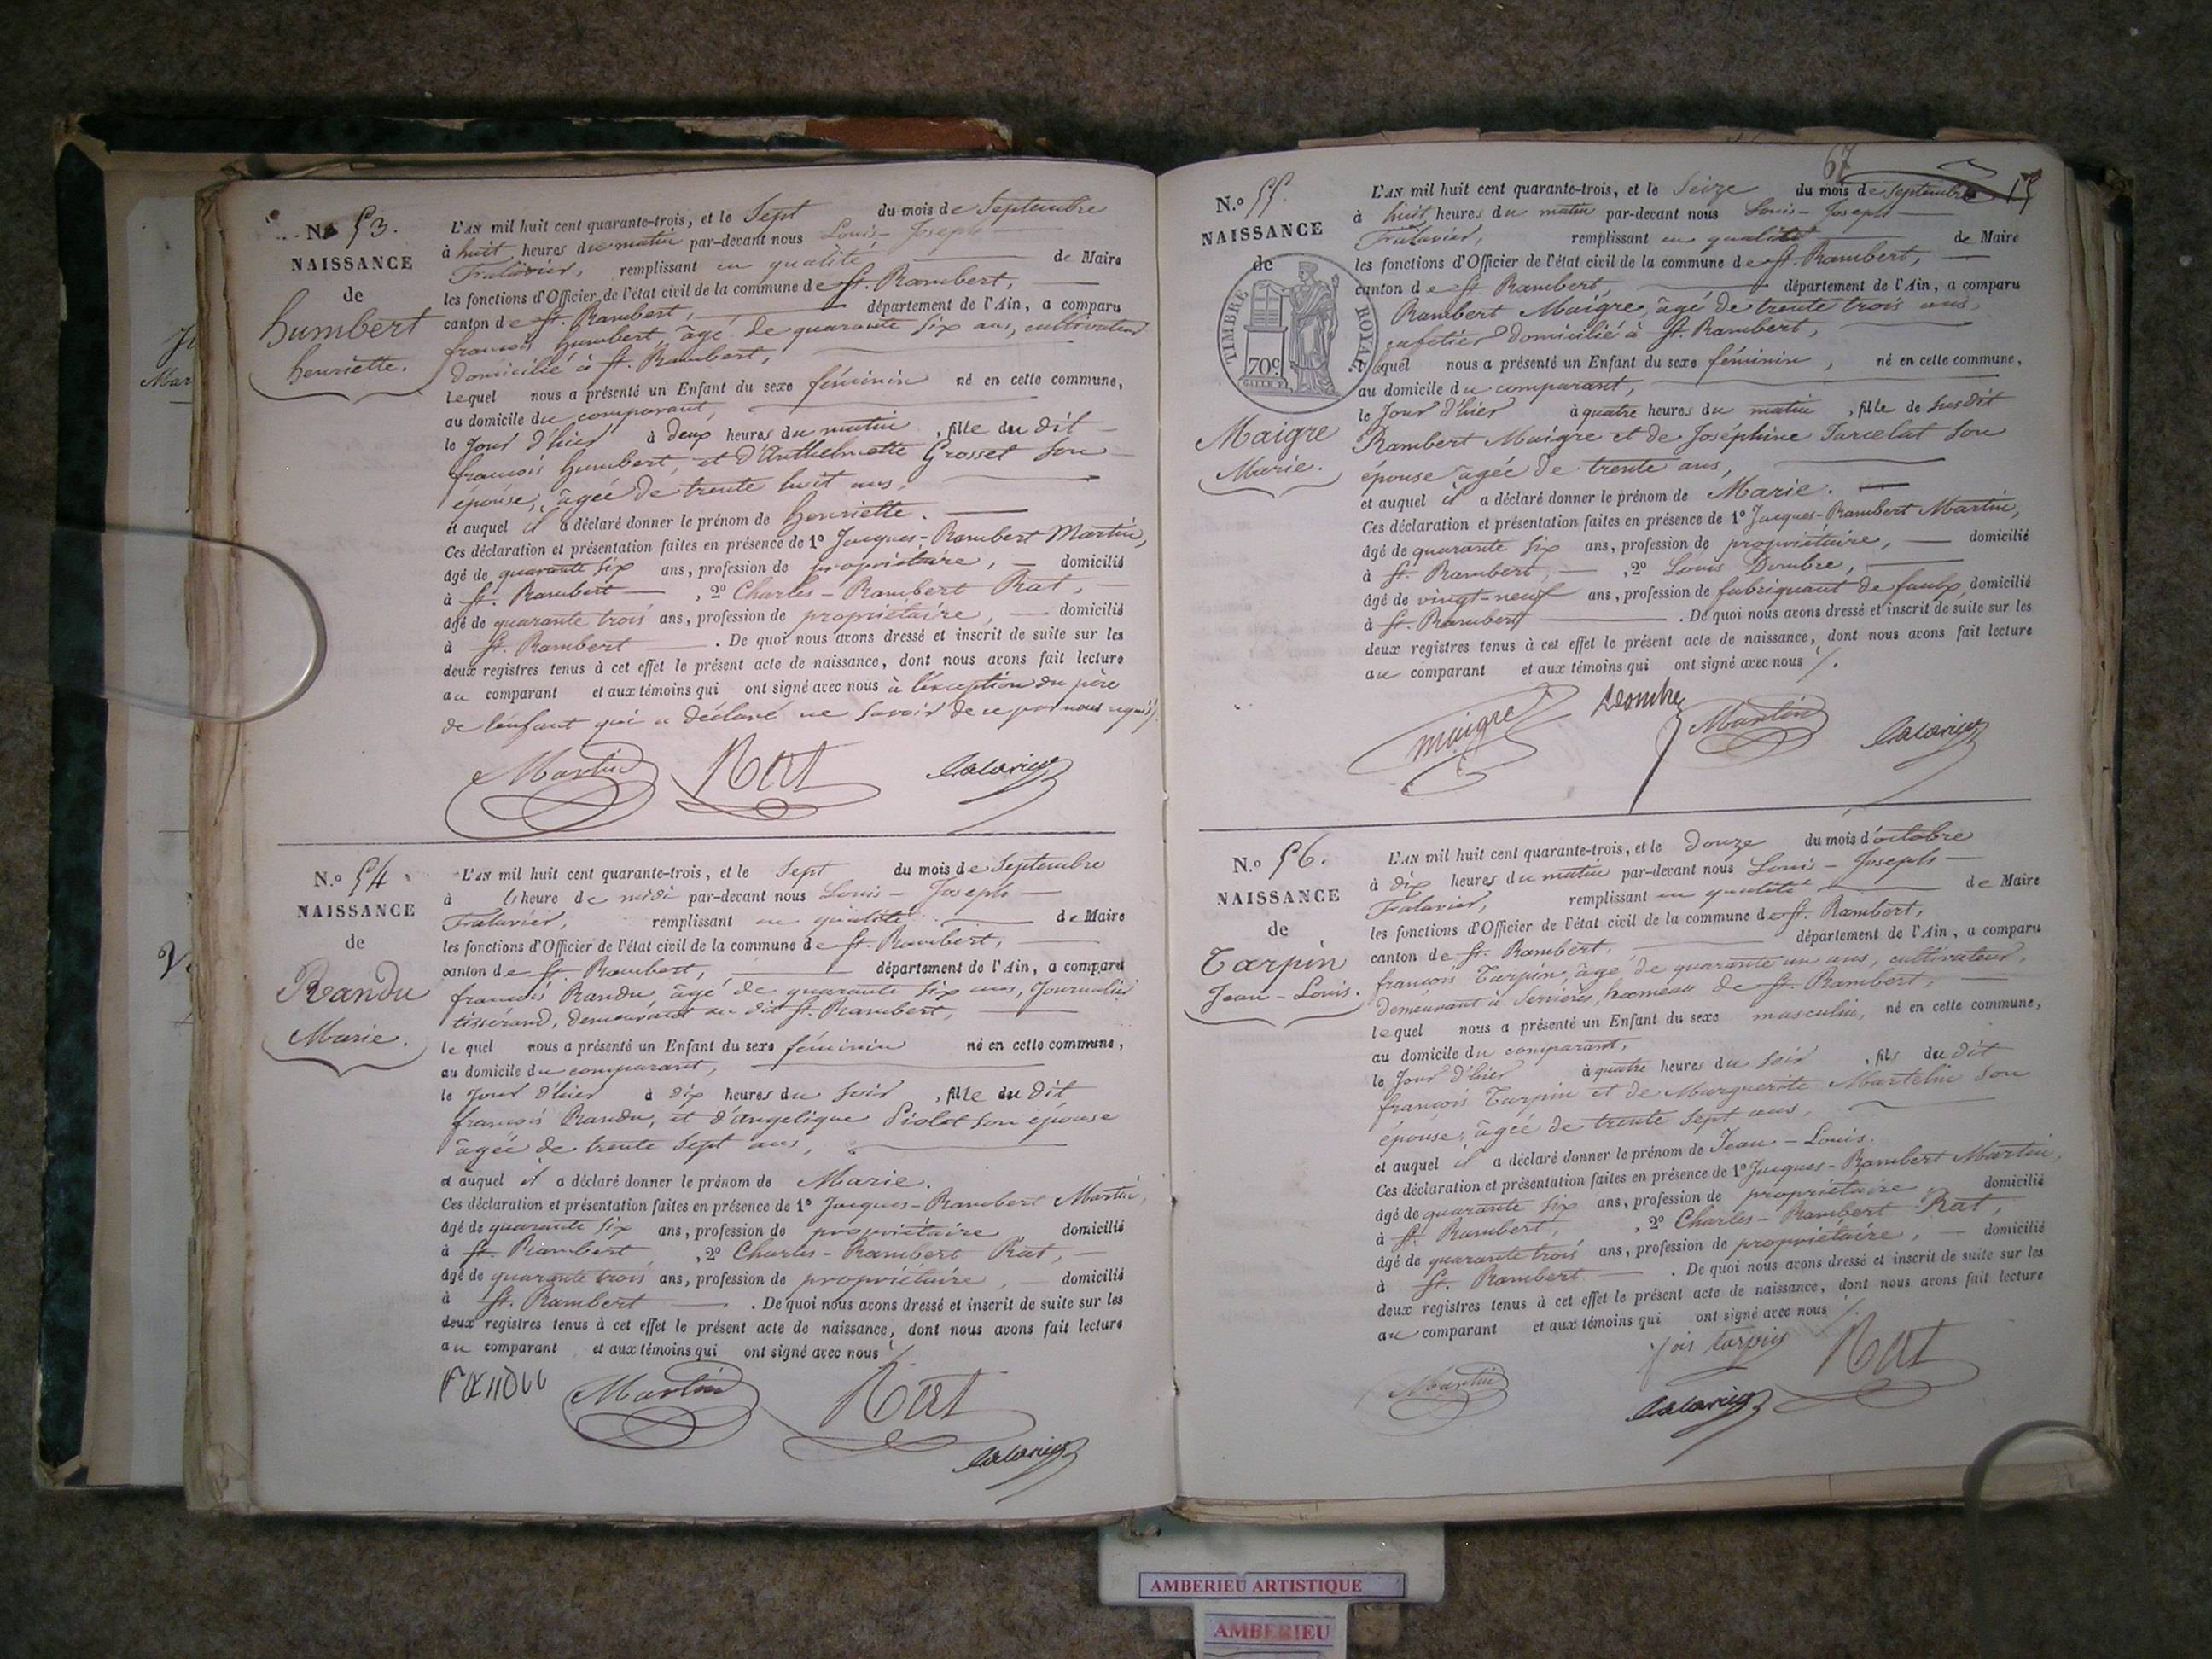 N.º 53.
NAISSANCE
de
humbert
henriette.
L'AN mil huit cent quarante-trois, et le Sept du mois de Septembre
à huit heures du matin par-devant nous Louis-Joseph
remplissant en qualité de Maire
les fonctions d'Officier de l'état civil de la commune de St. Rambert,
canton de St. Rambert, département de l'Ain, a comparu
françois humbert, âgé de quarante six ans, cultivateur
domicilié à St. Rambert,
lequel nous a présenté un Enfant du sexe féminin né en cette commune,
au domicile du comparant,
le Jour d'hier à deux heures du matin, fille du dit
françois humbert, et d'Anthelmette Grosset son
épouse, âgée de trente huit ans,
et auquel il a déclaré donner le prénom de henriette.
Ces déclaration et présentation faites en présence de 1º Jacques-Rambert Martin,
âgé de quarante six ans, profession de propriétaire, domicilié
à St. Rambert, 2º Charles-Rambert Rat,
âgé de quarante trois ans, profession de propriétaire, domicilié
à St. Rambert. De quoi nous avons dressé et inscrit de suite sur les
deux registres tenus à cet effet le présent acte de naissance, dont nous avons fait lecture
au comparant et aux témoins qui ont signé avec nous à l'exception du père
de l'enfant qui a déclaré ne savoir de ce par nous requis
Martin Rat
N.º 54
NAISSANCE
de
Randu
Marie.
L'AN mil huit cent quarante-trois, et le Sept du mois de Septembre
à l'heure de midi par-devant nous Louis-Joseph
remplissant en qualité de Maire
les fonctions d'Officier de l'état civil de la commune de St. Rambert,
canton de St. Rambert, département de l'Ain, a comparu
françois Randu, âgé de quarante six ans, Journalier
tissérand, demeurant au dit St. Rambert,
lequel nous a présenté un Enfant du sexe féminin né en cette commune,
au domicile du comparant,
le Jour d'hier à dix heures du soir, fille du dit
françois Randu, et d'Angelique Piolet son épouse
âgée de trente sept ans,
et auquel il a déclaré donner le prénom de Marie.
Ces déclaration et présentation faites en présence de 1º Jacques-Rambert Martin,
âgé de quarante six ans, profession de propriétaire domicilié
à St. Rambert, 2º Charles-Rambert Rat,
âgé de quarante trois ans, profession de propriétaire, domicilié
à St. Rambert. De quoi nous avons dressé et inscrit de suite sur les
deux registres tenus à cet effet le présent acte de naissance, dont nous avons fait lecture
au comparant et aux témoins qui ont signé avec nous
randu Martin Rat
67
N.º 55.
NAISSANCE
de
TIMBRE ROYAL
70c
Maigre
Marie.
L'AN mil huit cent quarante-trois, et le Seize du mois de Septembre
à huit heures du matin par-devant nous Louis-Joseph
remplissant en qualité de Maire
les fonctions d'Officier de l'état civil de la commune de St. Rambert,
canton de St. Rambert, département de l'Ain, a comparu
Rambert Maigre, âgé de trente trois ans,
cafetier domicilié à St. Rambert,
lequel nous a présenté un Enfant du sexe féminin, né en cette commune,
au domicile du comparant,
le Jour d'hier à quatre heures du matin, fille de susdit
Rambert Maigre et de Joséphine Sarcelat son
épouse âgée de trente ans,
et auquel il a déclaré donner le prénom de Marie.
Ces déclaration et présentation faites en présence de 1º Jacques-Rambert Martin,
âgé de quarante six ans, profession de propriétaire, domicilié
à St. Rambert, 2º Louis Dombre,
âgé de vingt-neuf ans, profession de fabriquant de faulx, domicilié
à St. Rambert. De quoi nous avons dressé et inscrit de suite sur les
deux registres tenus à cet effet le présent acte de naissance, dont nous avons fait lecture
au comparant et aux témoins qui ont signé avec nous
Maigre Dombre Martin
N.º 56.
NAISSANCE
de
Tarpin
Jean-Louis.
L'AN mil huit cent quarante-trois, et le Douze du mois d'octobre
à dix heures du matin par-devant nous Louis-Joseph
remplissant en qualité de Maire
les fonctions d'Officier de l'état civil de la commune de St. Rambert,
canton de St. Rambert, département de l'Ain, a comparu
françois Tarpin, âgé de quarante un ans, cultivateur,
demeurant à Serrières, hameau de St. Rambert,
lequel nous a présenté un Enfant du sexe masculin, né en cette commune,
au domicile du comparant,
le Jour d'hier à quatre heures du soir, fils du dit
françois Tarpin et de Marguerite Martelin son
épouse, âgée de trente sept ans,
et auquel il a déclaré donner le prénom de Jean-Louis.
Ces déclaration et présentation faites en présence de 1º Jacques-Rambert Martin,
âgé de quarante six ans, profession de propriétaire domicilié
à St. Rambert, 2º Charles-Rambert Rat,
âgé de quarante trois ans, profession de propriétaire, domicilié
à St. Rambert. De quoi nous avons dressé et inscrit de suite sur les
deux registres tenus à cet effet le présent acte de naissance, dont nous avons fait lecture
au comparant et aux témoins qui ont signé avec nous
fois tarpin Rat
Martin
AMBERIEU ARTISTIQUE
AMBERIEU